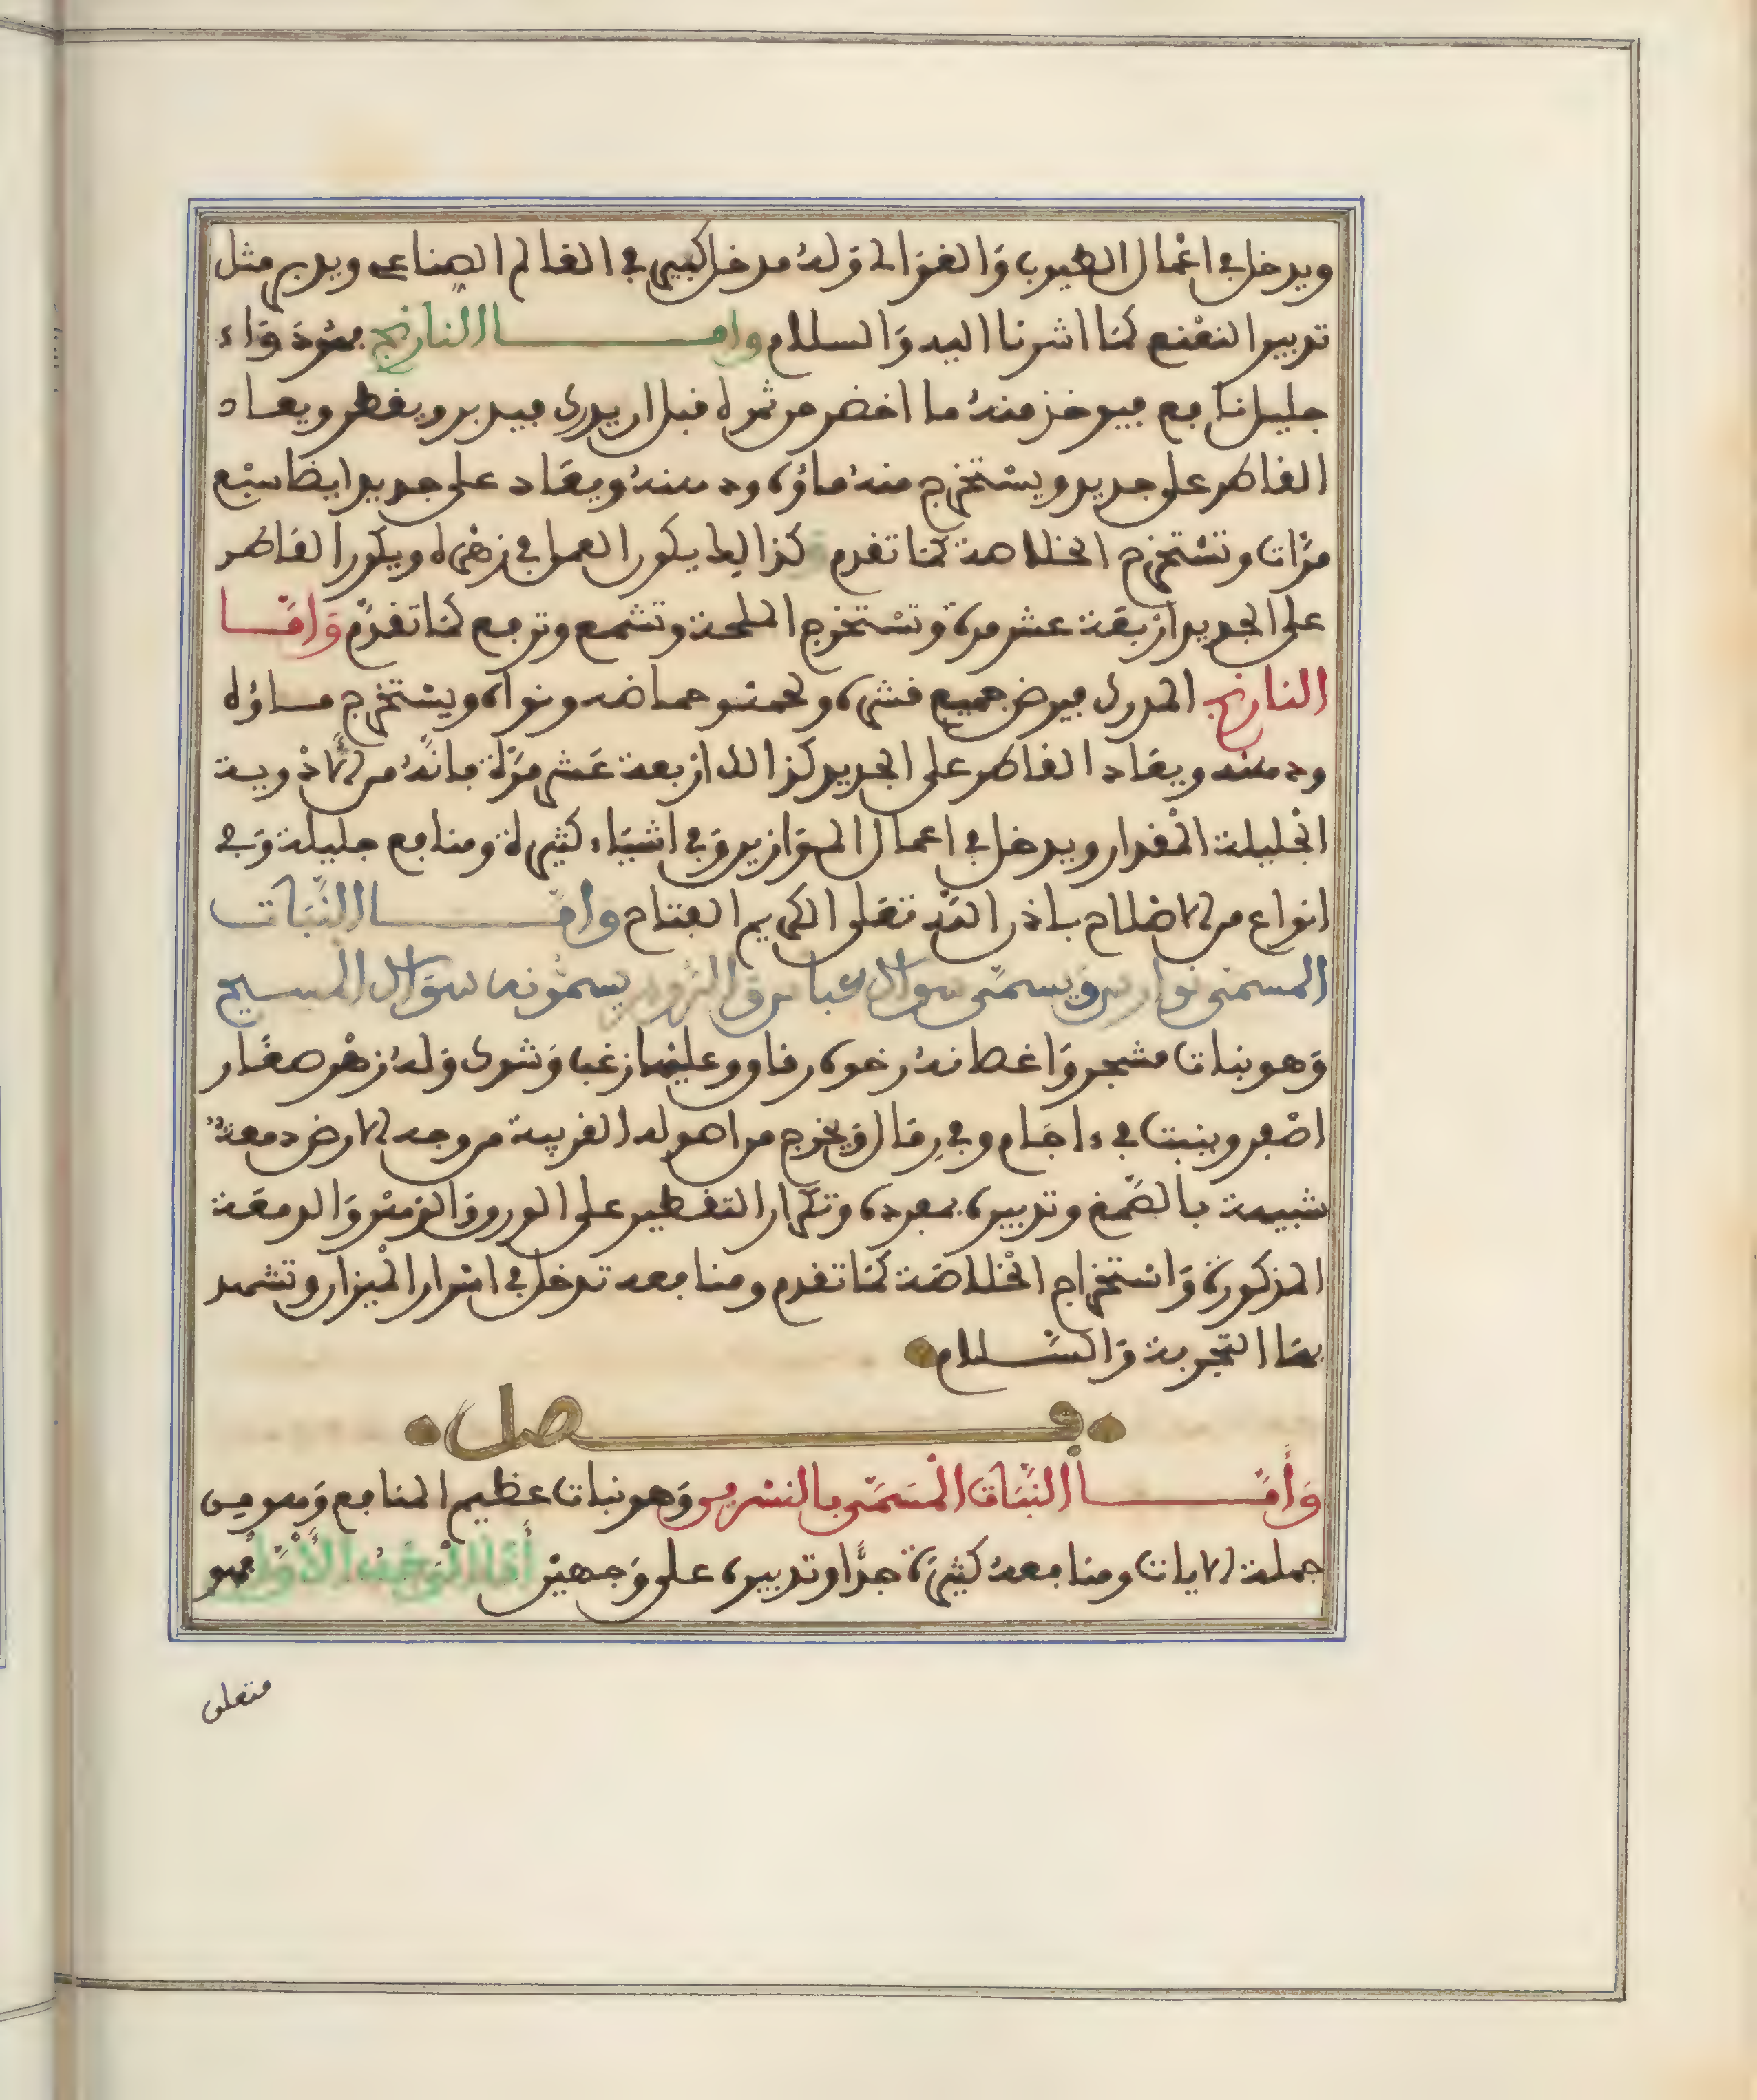 ويدخل في اعمال الطيوب والغوالي وله مدخل كبير في العالم الصناعي ويدبر مثل
تدبير النعنع كما اشرنا اليه والسلام واما النارنج فهو دواء
جليل نافع فيوخذ منه ما اخضر من ثمره قبل ان يدرى فيدبر ويقطر ويعاد
القاطر على جديد ويستخرج منه ماؤه ودهنه ويعاد على جديد ايضا سبع
مرات وتستخرج الخلاصة كما تقدم كذالك يكون العمل في زهره ويكون القاطر
على الجديد اربعة عشر مرة وتستخرج الملحة وتشمع وترفع كما تقدم واما
النارنج المدرى فيرض جميع قشره ولحمه وحماضه ونواه ويستخرج ماؤه
ودهنه ويعاد القاطر على الجديد كذالك اربعة عشر مرة فانه من الادوية
الجليلة المقدار ويدخل في اعمال الموازين وفي اشياء كثيرة ومنافع جليلة وفي
انواع من الاضلام باذن الله تعلى الكريم الفتاح واما النبات
المسمى ويسمى سواك عباس والروم يسمونه سواك المسيح
وهو نبات مشجر واغصانه رخوة رقاق وعليها زغب وشوك وله زهر صغار
اصفر وينبت في ءاجام وفي رمال ويخرج من اصوله القريبة من وجه الارض دمعة
شبيهة بالصمغ وتدبيره بمفرده وتكرار التقطير على الورق والزهر والدمعة
المذكورة واستخراج الخلاصة كما تقدم ومنافعه تدخل في اسرار الميزان وتشهد
بها التجربة والسلام
فصل
وأما النبات المسمى بالنسرين وهو نبات عظيم المنافع وهو من
جملة الايات ومنافعه كثيرة جدا وتدبيره على وجهين أما الوجه الأول فهو